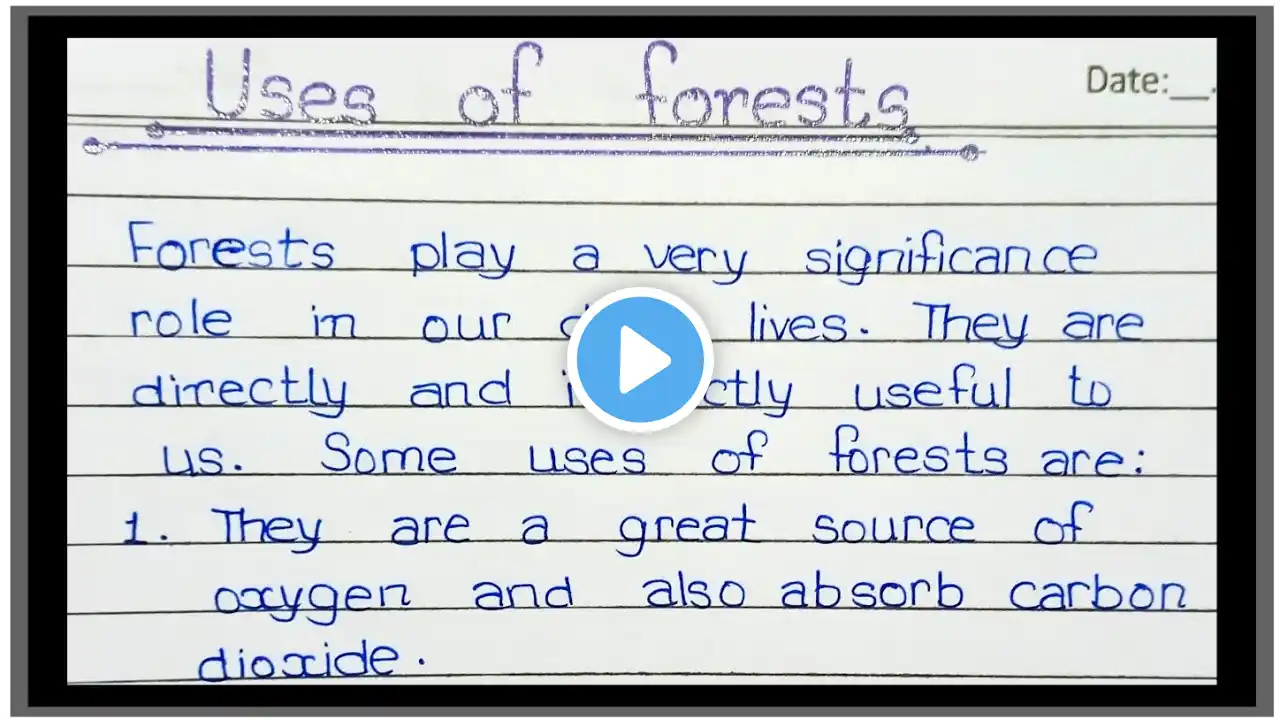 Uses of forests
Date:__.
Forests play a very significance
role in our lives. They are
directly and useful to
us. Some uses of forests are:
1. They are a great source of
oxygen and also absorb carbon
dioxide.